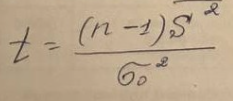 t = \frac{(n-1)\overline{S}^2}{\sigma_0^2}